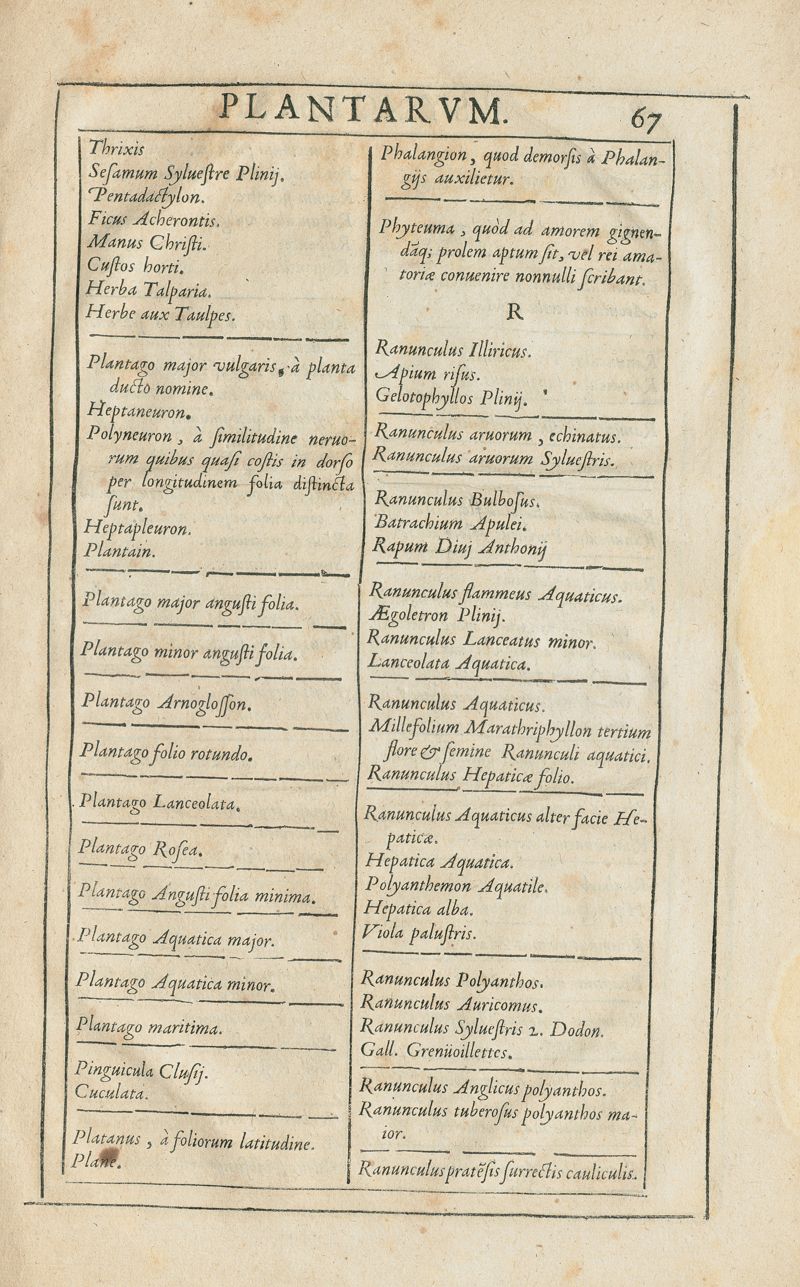 PLANTARVM.
67
Thrixis
Seſamum Sylueſtre Plinij.
Pentadactylon.
Ficus Acherontis.
Manus Chriſti.
Cuſtos horti.
Herba Talparia.
Herbe aux Taulpes.
Plantago major vulgaris, à planta
ducto nomine.
Heptaneuron.
Polyneuron, à ſimilitudine neruo-
rum quibus quaſi coſtis in dorſo
per longitudinem folia diſtincta
ſunt.
Heptapleuron.
Plantain.
Plantago major anguſti folia.
Plantago minor anguſti folia.
Plantago Arnogloſſon.
Plantago folio rotundo.
Plantago Lanceolata.
Plantago Roſea.
Plantago Anguſti folia minima.
Plantago Aquatica major.
Plantago Aquatica minor.
Plantago maritima.
Pinguicula Cluſij.
Cuculata.
Platanus, à foliorum latitudine.
Plane.
Phalangion, quod demorſis à Phalan-
gijs auxilietur.
Phyteuma, quòd ad amorem gignen-
dāq; prolem aptum ſit, vel rei ama-
toriæ conuenire nonnulli ſcribant.
R
Ranunculus Illiricus.
Apium riſus.
Gelotophyllos Plinij.
Ranunculus aruorum, echinatus.
Ranunculus aruorum Sylueſtris.
Ranunculus Bulboſus.
Batrachium Apulei.
Rapum Diuj Anthonij
Ranunculus flammeus Aquaticus.
Ægoletron Plinij.
Ranunculus Lanceatus minor.
Lanceolata Aquatica.
Ranunculus Aquaticus.
Millefolium Marathriphyllon tertium
flore & ſemine Ranunculi aquatici.
Ranunculus Hepaticæ folio.
Ranunculus Aquaticus alter facie He-
paticæ.
Hepatica Aquatica.
Polyanthemon Aquatile.
Hepatica alba.
Viola paluſtris.
Ranunculus Polyanthos.
Ranunculus Auricomus.
Ranunculus Sylueſtris 2. Dodon.
Gall. Grenüoillettes.
Ranunculus Anglicus polyanthos.
Ranunculus tuberoſus polyanthos ma-
ior.
Ranunculus pratēſis ſurrectis cauliculis.